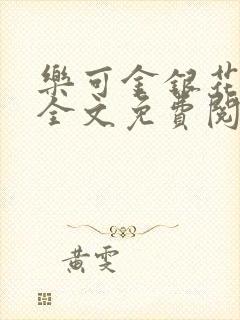 樂可金銀花
全文免費閱
黃雯